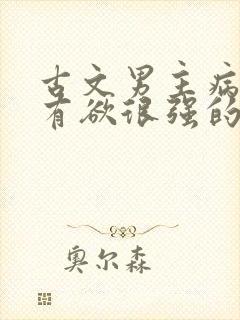 古文男主病
有欲很强的
奥尔森